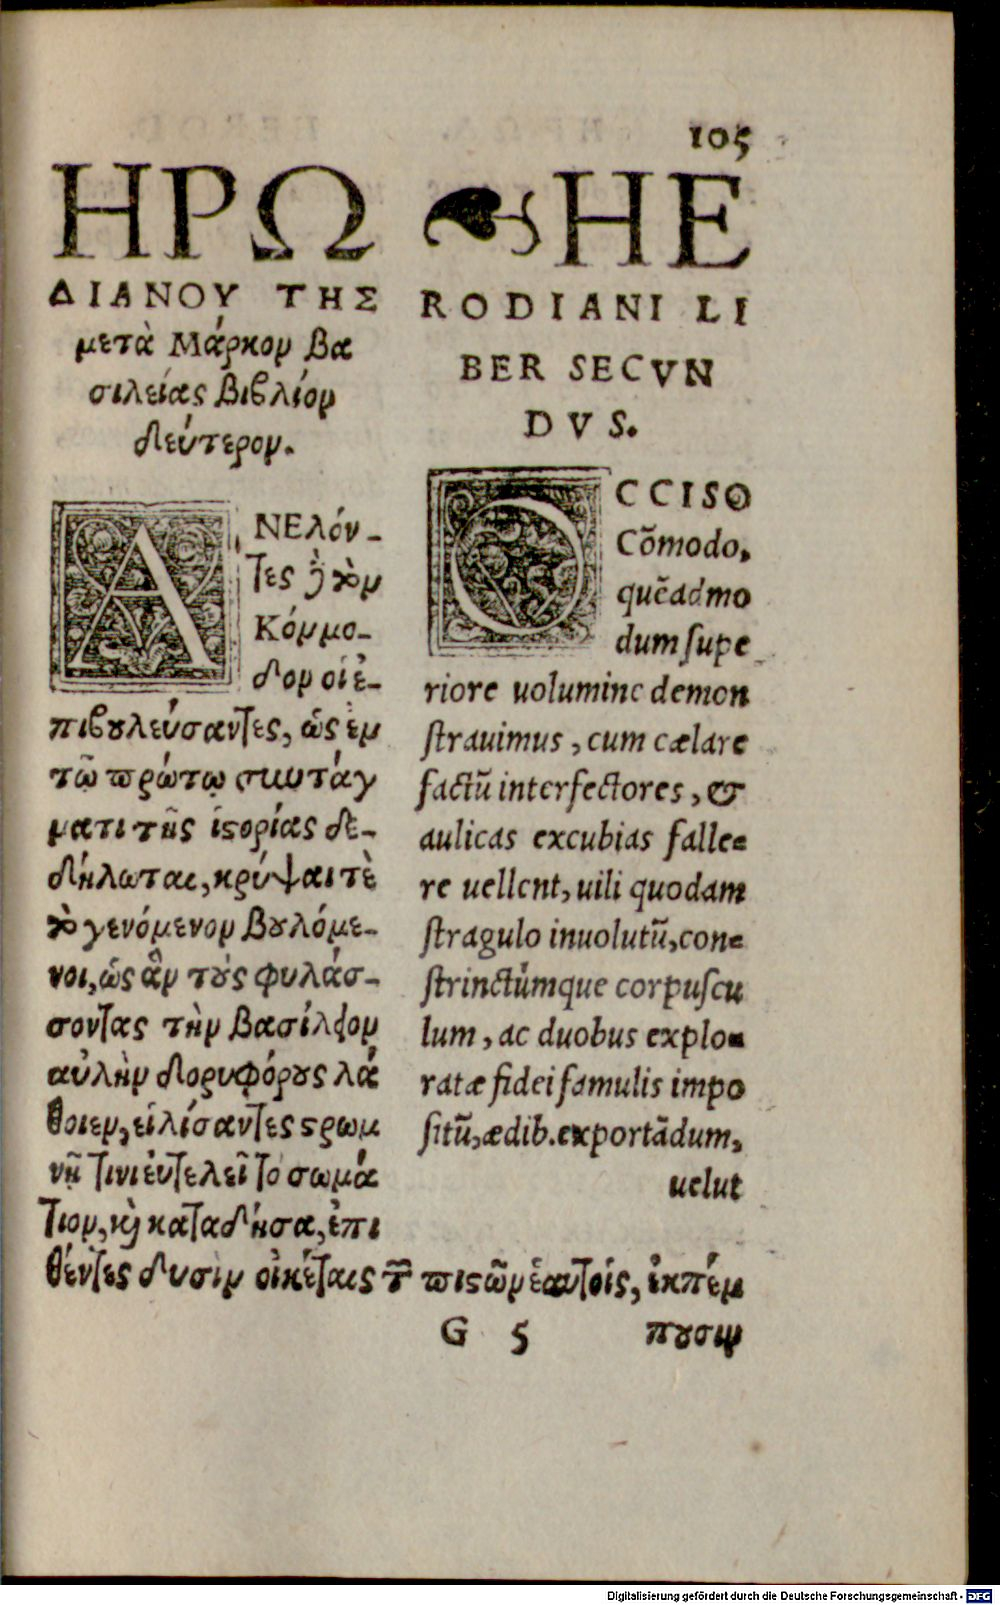 105
ΗΡΩ
ΔΙΑΝΟΥ ΤΗΣ
μετὰ Μάρκου βα
σιλείας βιβλίον
δεύτερον.
ΑΝΕλόν-
τες ᾗ τὸν
Κόμμο-
δον οἱ ἐ-
πιβουλεύσαντες, ὡς ἐν
τῷ πρώτῳ συντάγ
ματι τῆς ἱστορίας δε-
δήλωται, κρύψαι τὲ
τὸ γενόμενον βουλόμε-
νοι, ὡς ἂν τοὺς φυλάσ-
σοντας τὴν βασίλειον
αὐλὴν δορυφόρους λά
θοιεν, εἱλίσαντες στρωμ
νῇ τινι εὐτελεῖ τὸ σωμά
τιον, καὶ καταδήσα, ἐπι
θέντες δυσὶν οἰκέταις τῶν πιστῶν ἑαυτοῖς, ἐκπέμ
HE
RODIANI LI
BER SECVN
DVS.
OCCISO
Cõmodo,
quẽadmo
dum supe
riore uolumine demon
strauimus, cum cælare
factũ interfectores, &
aulicas excubias falle=
re uellent, uili quodam
stragulo inuolutũ, con=
strinctúmque corpuscu
lum, ac duobus explo=
ratæ fidei famulis impo
sitũ, ædib. exportãdum,
uelut
G 5 πουσιν
Digitalisierung gefördert durch die Deutsche Forschungsgemeinschaft - DFG